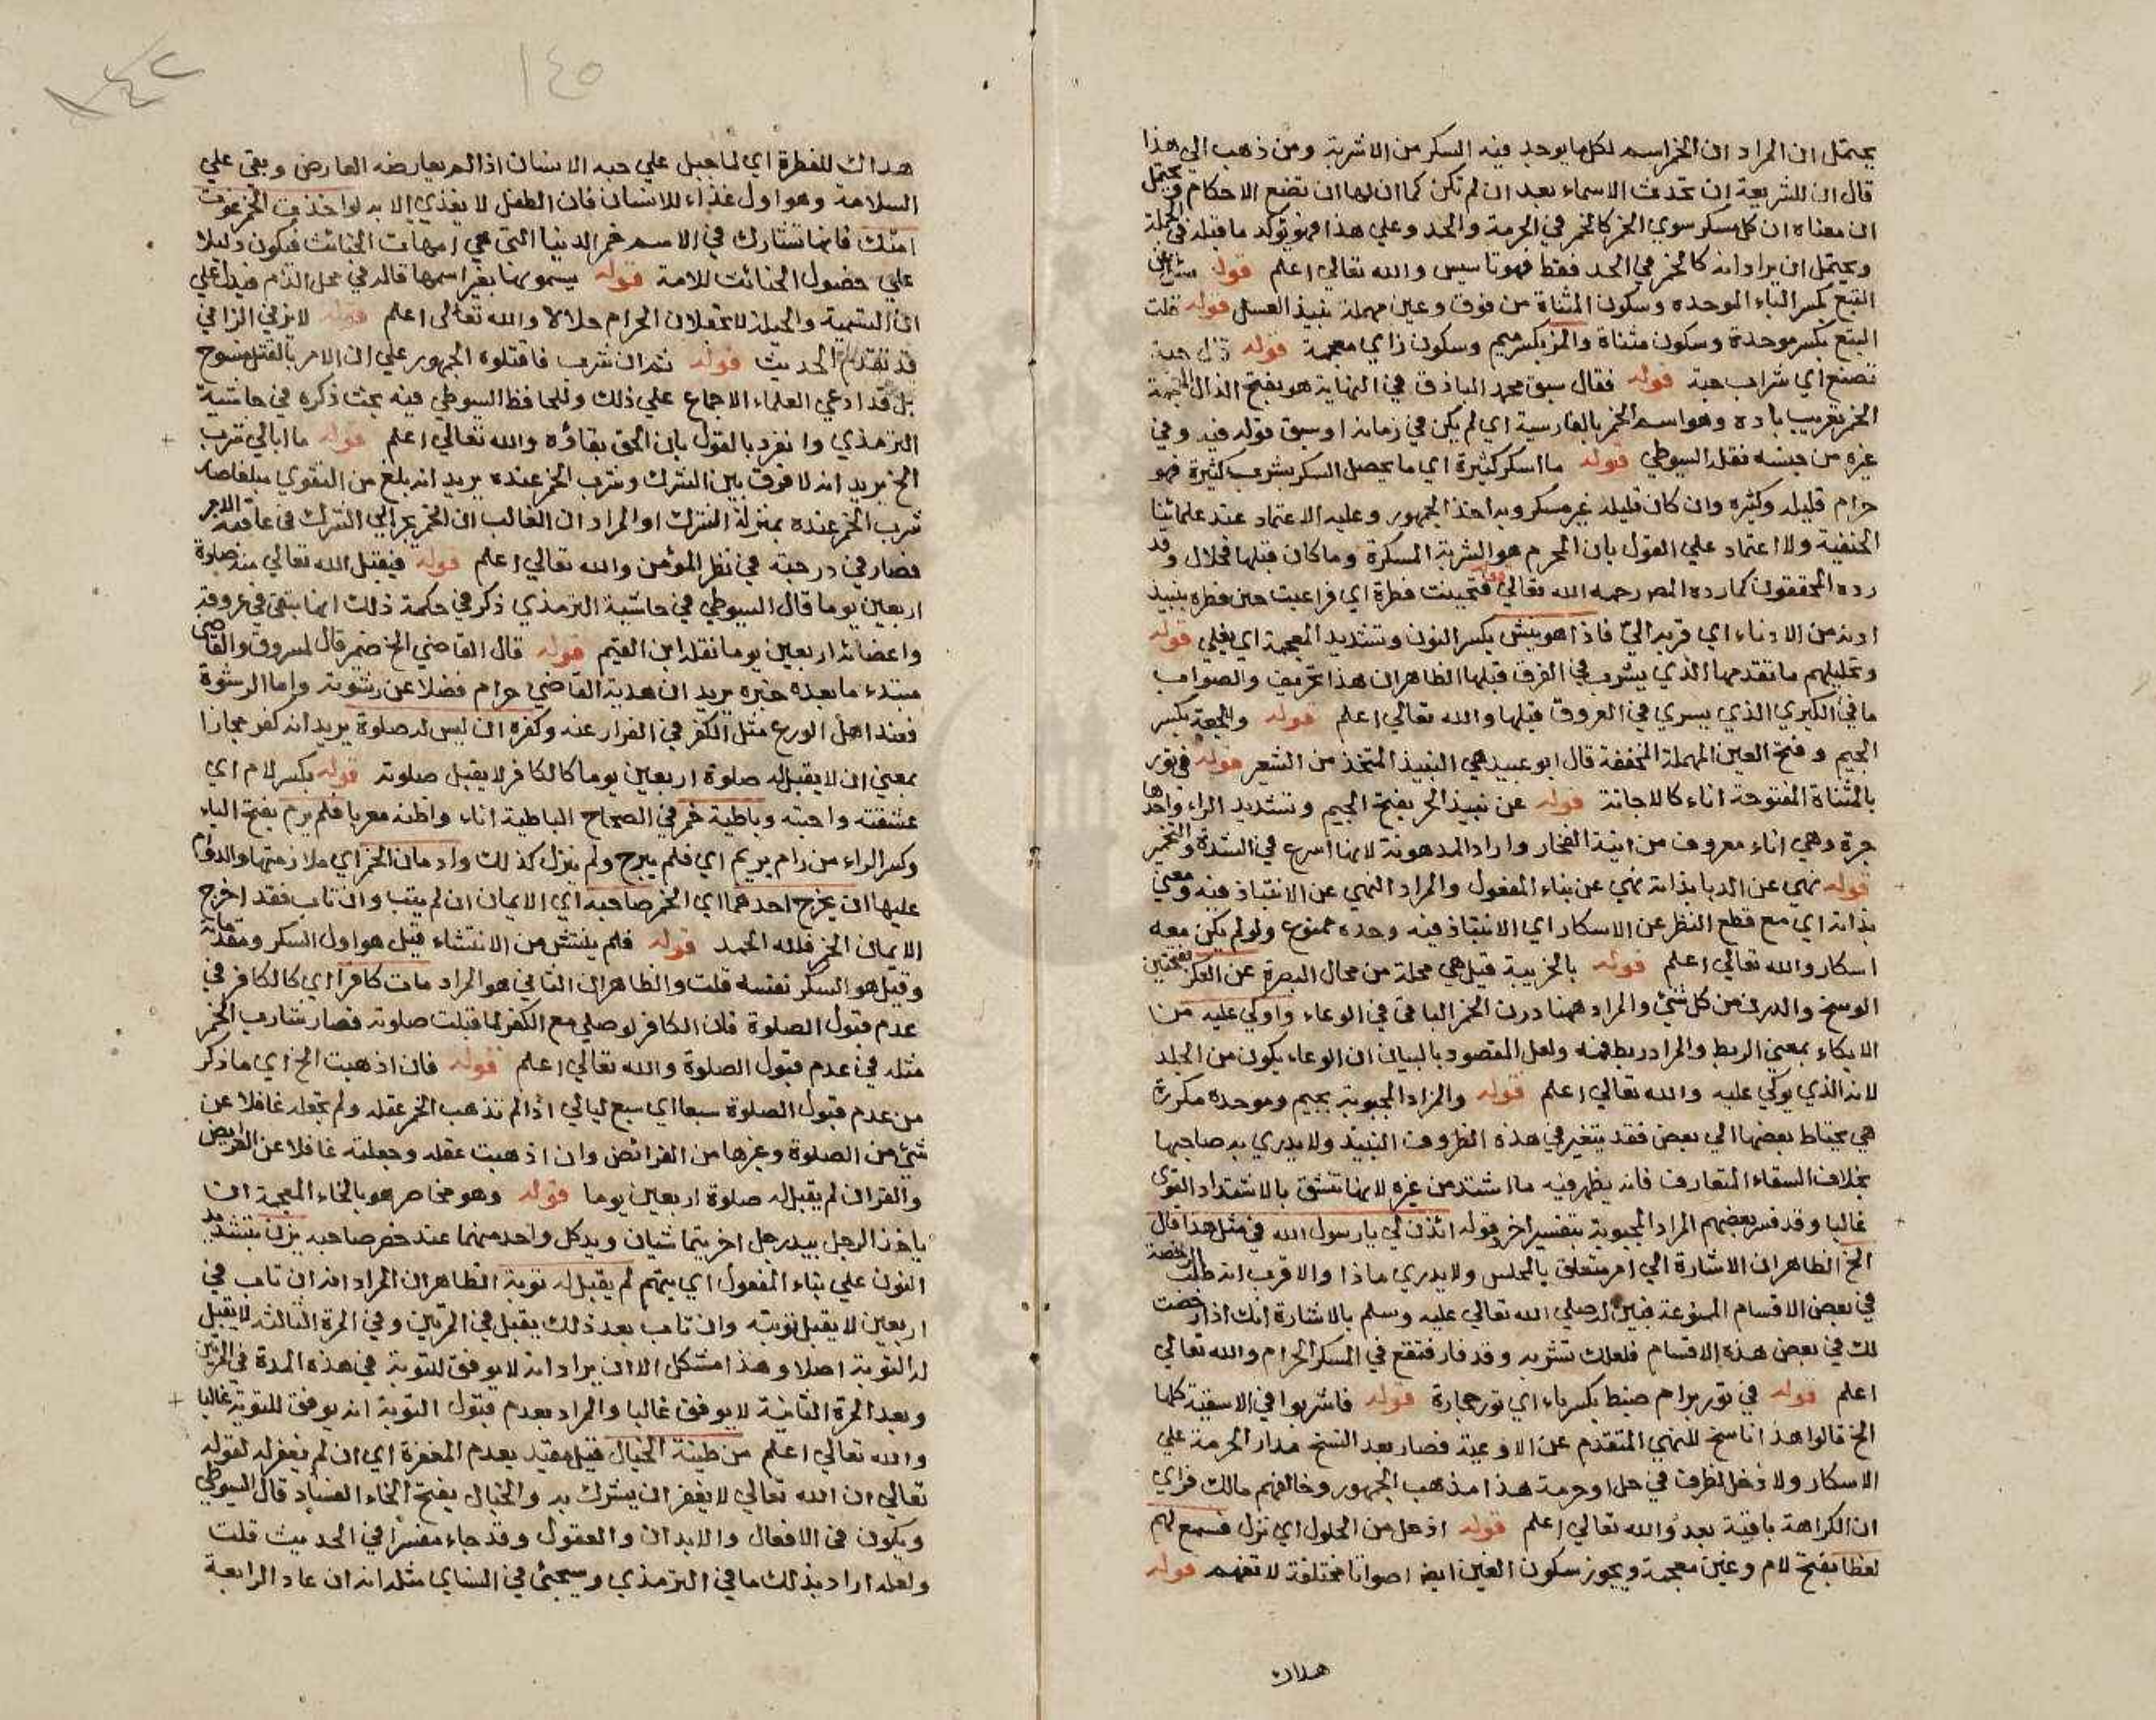 يحتمل ان المراد ان الخمر اسم لكل ما يوجد فيه السكر من الاشربة ومن ذهب الي هذا
قال ان للشريعة ان تحدث الاسماء بعد ان لم تكن كما ان لها ان تضع الاحكام ويحتمل
ان معناه ان كل مسكر سوي الخمر كالخمر في الحرمة والحد وعلي هذا فهو توكد ما قبله في الجملة
ويحتمل ان يراد انه كالخمر في الحد فقط فهو تاسيس والله تعالي اعلم قوله
البتع بكسر الباء الموحده وسكون المثناة من فوق وعين مهملة نبيذ العسل قوله قلت
البتع بكسر موحدة وسكون مثناة والمزر بكسر ميم وسكون زاي معجمة قوله
تصنع اي شراب حبة قوله فقال سبق محمد الباذق في النهاية هو بفتح الذال المعجمة
الخمر تعريب باده وهو اسم الخمر بالفارسية اي لم يكن في زمانه او سبق قوله فيه وفي
غيره من جنسه نقله السيوطي قوله ما اسكر كثيرة اي ما يحصل السكر بشرب كثيرة فهو
حرام قليله وكثيره وان كان قليله غير مسكر وبه اخذ الجمهور وعليه الاعتماد عند علمائنا
الحنفية ولا اعتماد علي القول بان المحرم هو الشربة المسكرة وما كان قبلها فحلال وقد
رده المحققون كما رده المص رحمه الله تعالي قوله فتحينت فطرة اي فراعيت حين فطره بنبيذ
ادنه من الادناء اي قربه الي فاذا هو ينش بكسر النون وتشديد المعجمة اي يغلي قوله
وتحليلهم ما تقدمها الذي يشرب في الفرق قبلها الظاهر ان هذا تحريف والصواب
ما في الكبري الذي يسري في العروق قبلها والله تعالي اعلم قوله والجعة بكسر
الجيم وفتح العين المهملة المخففة قال ابو عبيد هي النبيذ المتخذ من الشعير قوله في تور
بالمثناة المفتوحة اناء كالاجانة قوله عن نبيذ الجر بفتح الجيم وتشديد الراء واحدها
جرة وهي اناء معروف من انية الفخار واراد المدهونة لانها اسرع في الشدة والتخمير
قوله نهي عن الدبا بذاته نهي عن بناء المفعول والمراد النهي عن الانتباذ فيه ومعني
بذاته اي مع قطع النظر عن الاسكار اي الانتباذ فيه وحده ممنوع ولو لم يكن معه
اسكار والله تعالي اعلم قوله بالخريبة قيل هي محلة من محال البصرة عن العكر بفتحتين
الوسخ والدرن من كل شئ والمراد ههنا درن الخمر الباقي في الوعاء واوكي عليه من
الايكاء بمعني الربط والمراد ربط فمه ولعل المقصود بالبيان ان الوعاء يكون من الجلد
لانه الذي يوكي عليه والله تعالي اعلم قوله والمزاد المجبوبة بجيم وموحده مكررة
هي يخاط بعضها الي بعض فقد يتغير في هذه الظروف النبيذ ولا يدري به صاحبها
بخلاف السقاء المتعارف فانه يظهر فيه ما اشتد من غيره لانها تنشق بالاشتداد القوي
غالبا وقد فسر بعضهم المراد المجبوبة بتفسير اخر قوله ائذن لي يا رسول الله في مثل هذا قال
الخ الظاهر ان الاشارة الي امر متعلق بالمجلس ولا يدري ماذا والاقرب انه طلب الرخصة
في بعض الاقسام الممنوعة فبين له صلي الله تعالي عليه وسلم بالاشارة انك اذا رخصت
لك في بعض هذه الاقسام فلعلك تشربه وقد فار فتقع في المسكر الحرام والله تعالي
اعلم قوله في تور برام ضبط بكسر باء اي تور حجارة قوله فاشربوا في الاسقية كلها
الخ قالوا هذا ناسخ للنهي المتقدم عن الاوعية فصار بعد النسخ مدار الحرمة علي
الاسكار ولا دخل لظرف في حل او حرمة هذا مذهب الجمهور وخالفهم مالك فراي
ان الكراهة باقية بعد والله تعالي اعلم قوله اذ حل من الحلول اي نزل فسمع لهم
لغطا بفتح لام وغين معجمة ويجوز سكون الغين ايضا اصواتا مختلفة لا تفهم قوله
هداك
١٤٥
١٤٢
هداك للفطرة اي لما جبل علي حبه الانسان اذا لم يعارضه العارض وبقي علي
السلامة وهو اول غذاء للانسان فان الطفل لا يغذي الا به لو اخذت الخمر غوت
امتك فانها تشارك في الاسم خمر الدنيا التي هي امهات الخبائث فيكون دليلا
علي حصول الخبائث للامة قوله يسمونها بغير اسمها قاله في محل الذم فيدل علي
ان التسمية والحيلة لا تجعلان الحرام حلالا والله تعالي اعلم قوله لا يزني الزاني
قد تقدم الحديث قوله ثم ان شرب فاقتلوه الجمهور علي ان الامر بالقتل منسوخ
بل قد ادعي العلماء الاجماع علي ذلك وللحافظ السيوطي فيه بحث ذكره في حاشية
الترمذي وانفرد بالقول بان الحق بقاؤه والله تعالي اعلم قوله ما ابالي شرب
الخ يريد انه لا فرق بين الشرك وشرب الخمر عنده يريد انه بلغ من التقوي مبلغا صار
شرب الخمر عنده بمنزلة الشرك او المراد ان الغالب ان الخمر يجر الي الشرك في عاقبة الامر
فصار في درجته في نظر المؤمن والله تعالي اعلم قوله فيقبل الله تعالي منه صلوة
اربعين يوما قال السيوطي في حاشية الترمذي ذكر في حكمة ذلك انها تبقي في عروقه
واعضائه اربعين يوما نقله ابن القيم قوله قال القاضي الخ ضمير قال لمسروق والقاضي
مبتدء ما بعده خبره يريد ان هدية القاضي حرام فضلا عن رشوته واما الرشوة
فعند اهل الورع مثل الكفر في الفرار عنه وكفره ان ليس له صلوة يريد انه كفر مجازا
بمعني ان لا يقبل له صلوة اربعين يوما كالكافر لا يقبل صلوته قوله بكسر لام اي
عشقته واحبته وباطية خمر في الصحاح الباطية اناء واظنه معربا فلم يرم بفتح الياء
وكسر الراء من رام يريم اي فلم يبرح ولم ينزل كذلك وادمان الخمر اي ملازمتها والدوام
عليها ان يخرج احدهما اي الخمر صاحبه اي الايمان ان لم يتب وان تاب فقد اخرج
الايمان الخمر فلله الحمد قوله فلم ينتش من الانتشاء قيل هو اول السكر ومقدماته
وقيل هو السكر نفسه قلت والظاهر ان الثاني هو المراد مات كافرا اي كالكافر في
عدم قبول الصلوة فان الكافر لو صلي مع الكفر لما قبلت صلوته فصار شارب الخمر
مثله في عدم قبول الصلوة والله تعالي اعلم قوله فان اذهبت الخ اي ما ذكر
من عدم قبول الصلوة سبعا اي سبع ليالي اذا لم تذهب الخمر عقله ولم تجعله غافلا عن
شئ من الصلوة وغيرها من الفرائض وان اذهبت عقله وجعلته غافلا عن الفرائض
والقران لم يقبل له صلوة اربعين يوما قوله وهو مخاصر هو بالخاء المعجمة ان
ياخذ الرجل بيد رجل اخر يتماشيان ويد كل واحد منهما عند خصر صاحبه يزن بتشديد
النون علي بناء المفعول اي يتهم لم يقبل له توبة الظاهر ان المراد انه ان تاب في
اربعين لا يقبل توبته وان تاب بعد ذلك يقبل في المرتين وفي المرة الثالثة لا يقبل
له التوبة اصلا وهذا مشكل الا ان يراد انه لا يوفق للتوبة في هذه المدة في المرتين
وبعد المرة الثانية لا يوفق غالبا والمراد بعدم قبول التوبة انه يوفق للتوبة غالبا
والله تعالي اعلم من طينة الخبال قيل مقيد بعدم المغفرة اي ان لم يغفر له لقوله
تعالي ان الله تعالي لا يغفر ان يشرك به والخبال بفتح الخاء الفساد قال السيوطي
ويكون في الافعال والابدان والعقول وقد جاء مفسرا في الحديث قلت
ولعله اراد بذلك ما في الترمذي وسيجئ في النساي مثله انه ان عاد الرابعة